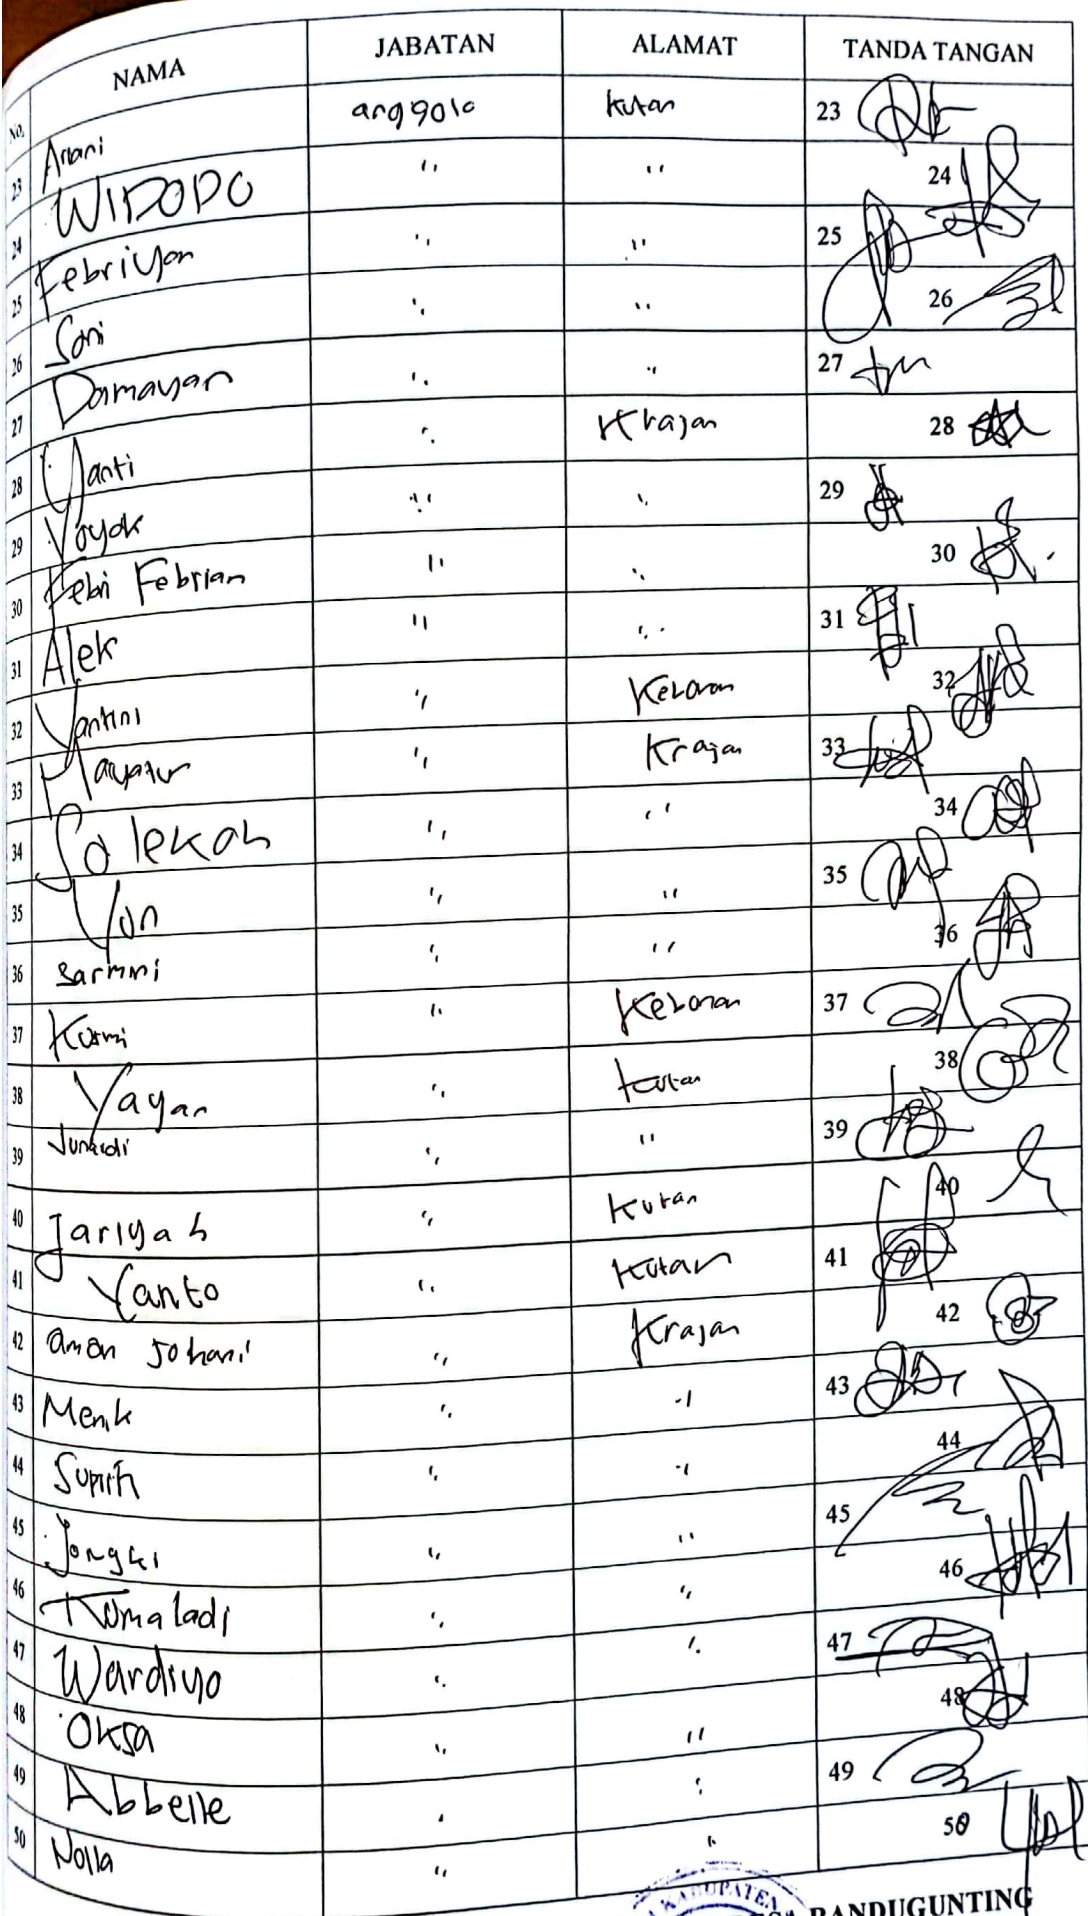 No. NAMA JABATAN ALAMAT TANDA TANGAN
23 Ariani anggota kutan 23
24 WIDODO " " 24
25 Febriyan " " 25
26 Sari " " 26
27 Damayan " " 27
28 Yanti " Krajan 28
29 Yoyok " " 29
30 Febri Febrian " " 30
31 Alek " " 31
32 Yantini " Kebonan 32
33 " Krajan 33
34 Solekah " " 34
35 Yan " " 35
36 Sarmini " " 36
37 Kasmi " Kebonan 37
38 Yayan " kutan 38
39 Junaidi " " 39
40 Jariyah " Kutan 40
41 Yanto " Kutan 41
42 aman Johani " Krajan 42
43 Menik " " 43
44 " " 44
45 Jongki " " 45
46 Kumaladi " " 46
47 Wardiyo " " 47
48 Oksa " " 48
49 Abbelle " " 49
50 Nolla " " 50
KABUPATEN
DESA PANDUGUNTING